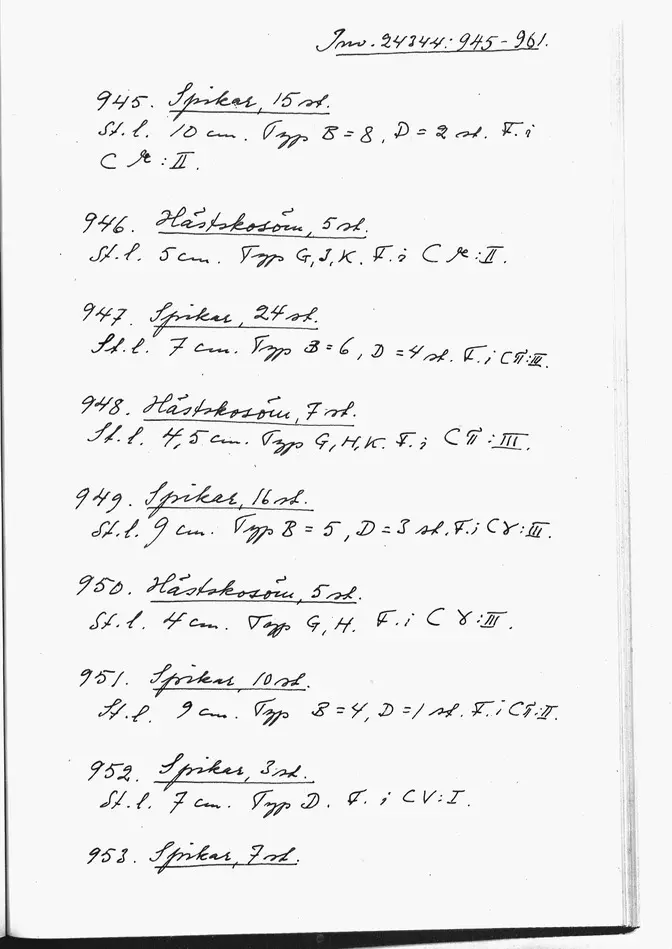 Inv. 24344: 945-961.
945. Spikar, 15 st.
St. l. 10 cm. Typ B = 8, D = 2 st. F. i
C :II.
946. Hästskosöm, 5 st.
St. l. 5 cm. Typ G, J, K. F. i C :II.
947. Spikar, 24 st.
St. l. 7 cm. Typ B = 6, D = 4 st. F. i C :III.
948. Hästskosöm, 7 st.
St. l. 4,5 cm. Typ G, H, K. F. i C :III.
949. Spikar, 16 st.
St. l. 9 cm. Typ B = 5, D = 3 st. F. i C γ:III.
950. Hästskosöm, 5 st.
St. l. 4 cm. Typ G, H. F. i C γ:III.
951. Spikar, 10 st.
St. l. 9 cm. Typ B = 4, D = 1 st. F. i C :II.
952. Spikar, 3 st.
St. l. 7 cm. Typ D. F. i C V:I.
953. Spikar, 7 st.